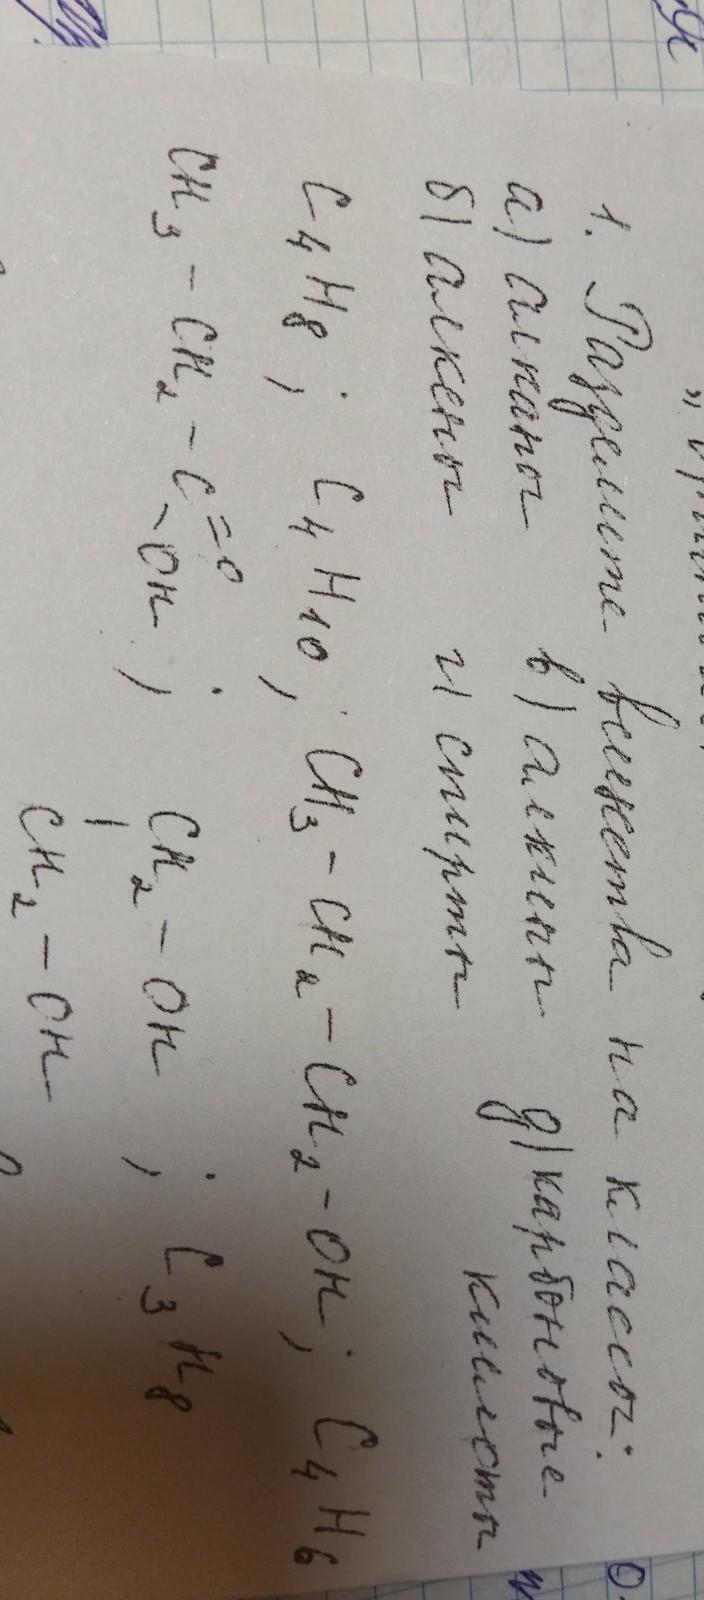 1. Разделите вещества на классы:
а) алканы в) алкины д) карбоновые
б) алкены г) спирты кислоты
C₄H₈; C₄H₁₀; CH₃-CH₂-CH₂-OH; C₄H₆
CH₃-CH₂-C=O
-OH; CH₂-OH; C₃H₈
|
CH₂-OH